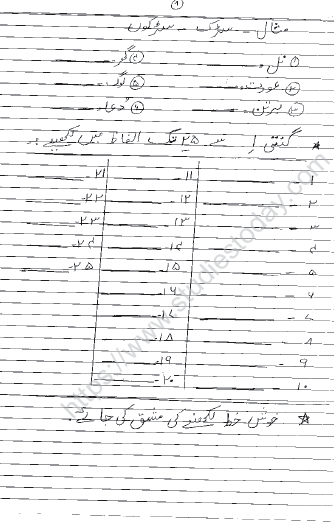 مثال ۔ سڑک ۔ سڑکوں
۱ نل ۔ ۴
۲ عورت ۔ ۵ لوگ ۔
۳ برتن ۔ ۶ دُعا ۔
★ گنتی ۱ سے ۲۵ تک الفاظ میں لکھیے ۔
۱ ۱۱ ۲۱
۲ ۱۲ ۲۲
۳ ۱۳ ۲۳
۴ ۱۴ ۲۴
۵ ۱۵ ۲۵
۶ ۱۶
۷ ۱۷
۸ ۱۸
۹ ۱۹
۱۰ ۲۰
★ خوش خط لکھنے کی مشق کی جائے ۔
https://www.studiestoday.com